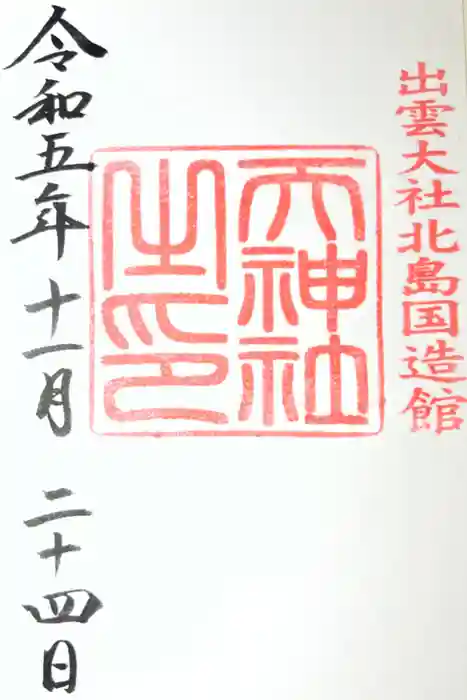 出雲大社北島国造館
天神社
之印
令和五年十一月二十四日